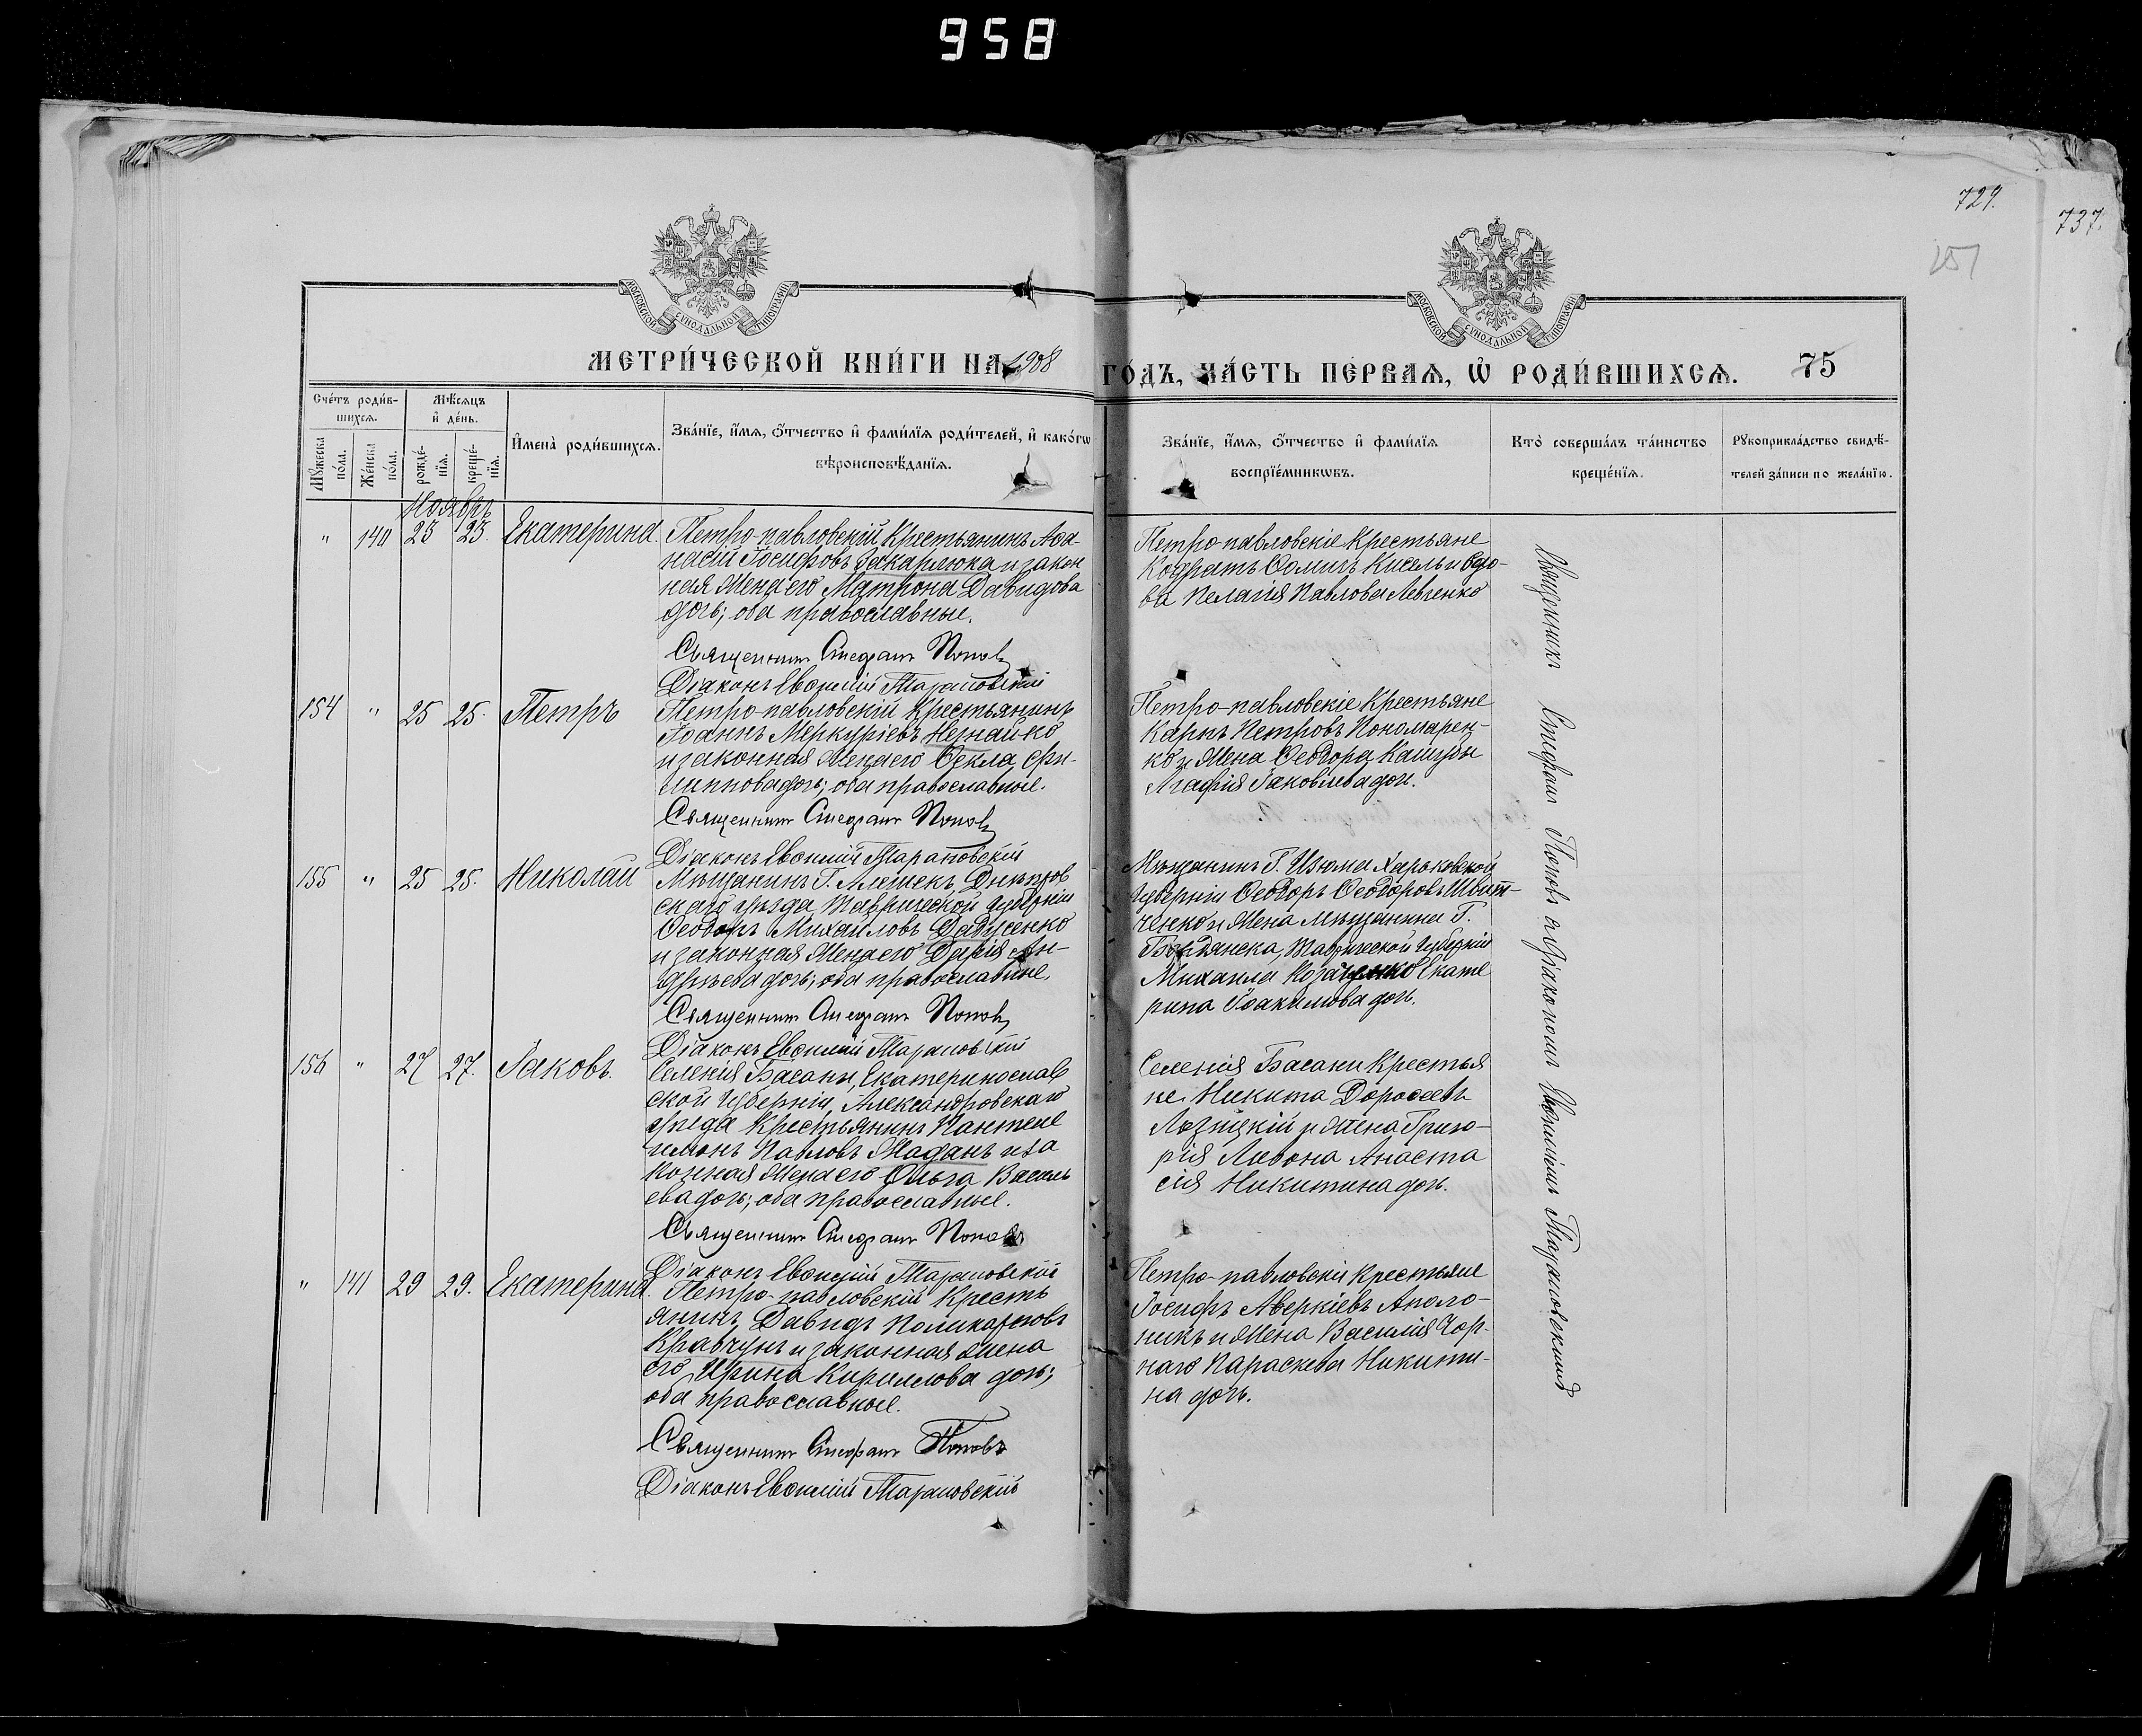 958
729.
737.
МОСКОВСКОЙ СѴНОДАЛЬНОЙ ТИПОГРАФІИ
МОСКОВСКОЙ СѴНОДАЛЬНОЙ ТИПОГРАФІИ
МЕТРИ́ЧЕСКОЙ КНИ́ГИ НА 1908
ГО́ДЪ, ЧА́СТЬ ПЕ́РВАѦ, Ѡ҆ РОДИ́ВШИХСѦ. 75
Сче́тъ роди́в-
шихсѧ.
Мѣ́сѧцъ
и҆ де́нь.
Мꙋ́жеска
по́ла.
Же́нска
по́ла.
рожде́-
нїѧ.
креще́-
нїѧ.
И҆мена̀ роди́вшихсѧ.
Зва́нїе, и҆́мѧ, ѻ҆́тчество и҆ фами́лїѧ роди́телей, и҆ како́гѡ
вѣроисповѣ́данїѧ.
Зва́нїе, и҆́мѧ, ѻ҆́тчество и҆ фами́лїѧ
воспрїе́мникѡвъ.
Кто̀ соверша́лъ та́инство
креще́нїѧ.
Рꙋкоприкла́дство свидѣ́-
телей за́писи по жела́нїю.
Ноябрь
" 140 23 23. Екатерина
Петро-павловскій Крестьянинъ Аѳа-
насій Іосифовъ Закарлюка и закон
ная Жена его Матрона Давидова
дочь; оба православные.
Священник Стефанъ Поповъ
Діаконъ Евѳимій Тарановскій
Петро-павловскіе Крестьяне
Кодратъ Ѳоминъ Кисель и вдо-
ва Пелагія Павлова Левченко
154 " 25 25. Петръ
Петро-павловскій Крестьянинъ
Іоаннъ Меркуріевъ Незнайко
и законная Жена его Ѳекла Фи-
липпова дочь; оба православные.
Священник Стефанъ Поповъ
Діаконъ Евѳимій Тарановскій
Петро-павловскіе Крестьяне
Карпъ Петровъ Пономарен-
ко и Жена Ѳеодора Кашуры
Агафія Іаковлева дочь.
155 " 25 25. Николай
Мѣщанинъ Г. Алешекъ, Днѣпров
скаго уѣзда Таврической губерніи
Ѳеодоръ Михаиловъ Дадусенко
и законная Жена его Дарія Ан-
дрѣева дочь; оба православные,
Священник Стефанъ Поповъ
Діаконъ Евѳимій Тарановскій
Мѣщанинъ Г. Изюма Харьковской
губерніи Ѳеодоръ Ѳеодоровъ
ченко и Жена мѣщанина Г.
Бердянска, Таврической губерніи
Михаила Козаченко Екате
рина Іоакимова дочь.
156 " 27 27. Іаковъ.
Селенія Басани, Екатеринослав
ской губерніи, Александровскаго
уѣзда Крестьянинъ Пантеле
имонъ Павловъ Жаданъ и за
конная Жена его Ольга Василь
ева дочь; оба православные.
Священник Стефанъ Поповъ
Діаконъ Евѳимій Тарановскій
Селенія Басани Крестья
не. Никита Дороѳеевъ
Лозицкій и Жена Григо-
рія Ливона Анаста
сія Никитина дочь.
" 141 29 29. Екатерина.
Петро-павловскій Кресть
янинъ Давидъ Поликарповъ
Кравчунъ и законная Жена
его Ирина Кириллова дочь;
оба православные.
Священник Стефанъ Поповъ
Діаконъ Евѳимій Тарановскій
Петро-павловскіе Крестьяне
Іосифъ Аверкіевъ Аполо-
никъ и Жена Василія Чор-
наго Параскева Никити-
на дочь.
Священникъ Стефанъ Поповъ с діакономъ Евѳиміемъ Тарановскимъ